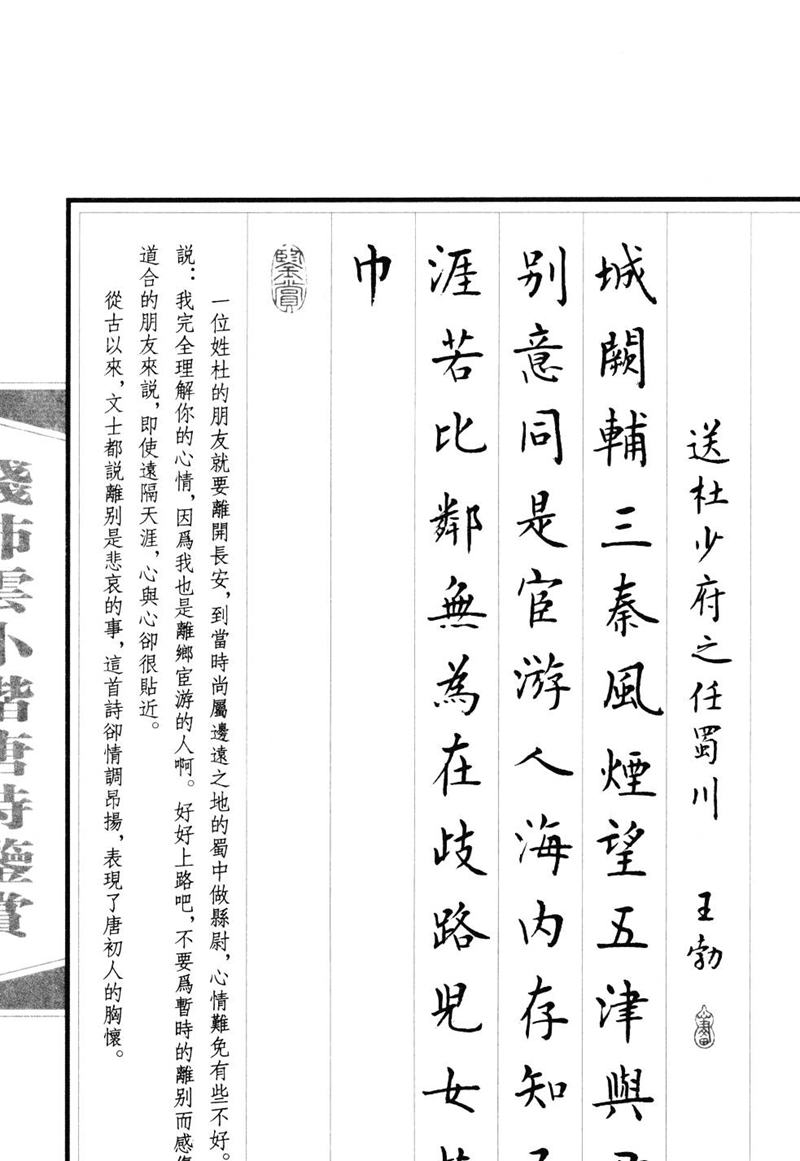 送杜少府之任蜀川 王勃
城闕輔三秦風煙望五津與
别意同是宦游人海内存知
涯若比鄰無為在歧路兒女
巾
鑒賞
一位姓杜的朋友就要離開長安，到當時尚屬邊遠之地的蜀中做縣尉，心情難免有些不好。
説：我完全理解你的心情，因爲我也是離鄉宦游的人啊。好好上路吧，不要爲暫時的離别而感傷
道合的朋友來説，即使遠隔天涯，心與心卻很貼近。
從古以來，文士都説離别是悲哀的事，這首詩卻情調昂揚，表現了唐初人的胸懷。
雲小楷唐詩鑒賞